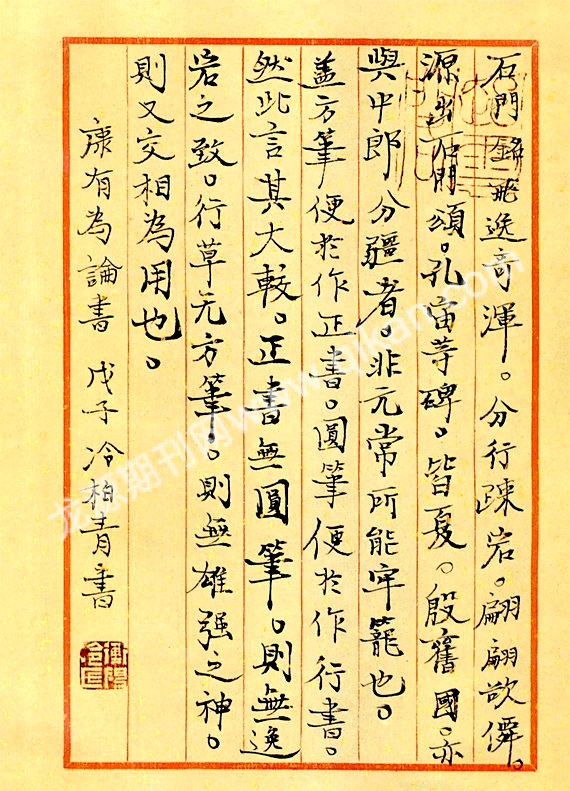 石門銘飛逸奇渾。分行疎宕。翩翩欲僊。
源出石門頌。孔宙等碑。皆夏。殷舊國。亦
與中郎分疆者。非元常所能牢籠也。
蓋方筆便於作正書。圓筆便於作行書。
然此言其大較。正書無圓筆。則無逸
宕之致。行草无方筆。則無雄强之神。
則又交相為用也。
康有為論書 戊子 冷柏青書
龙源期刊网www.qikan.com